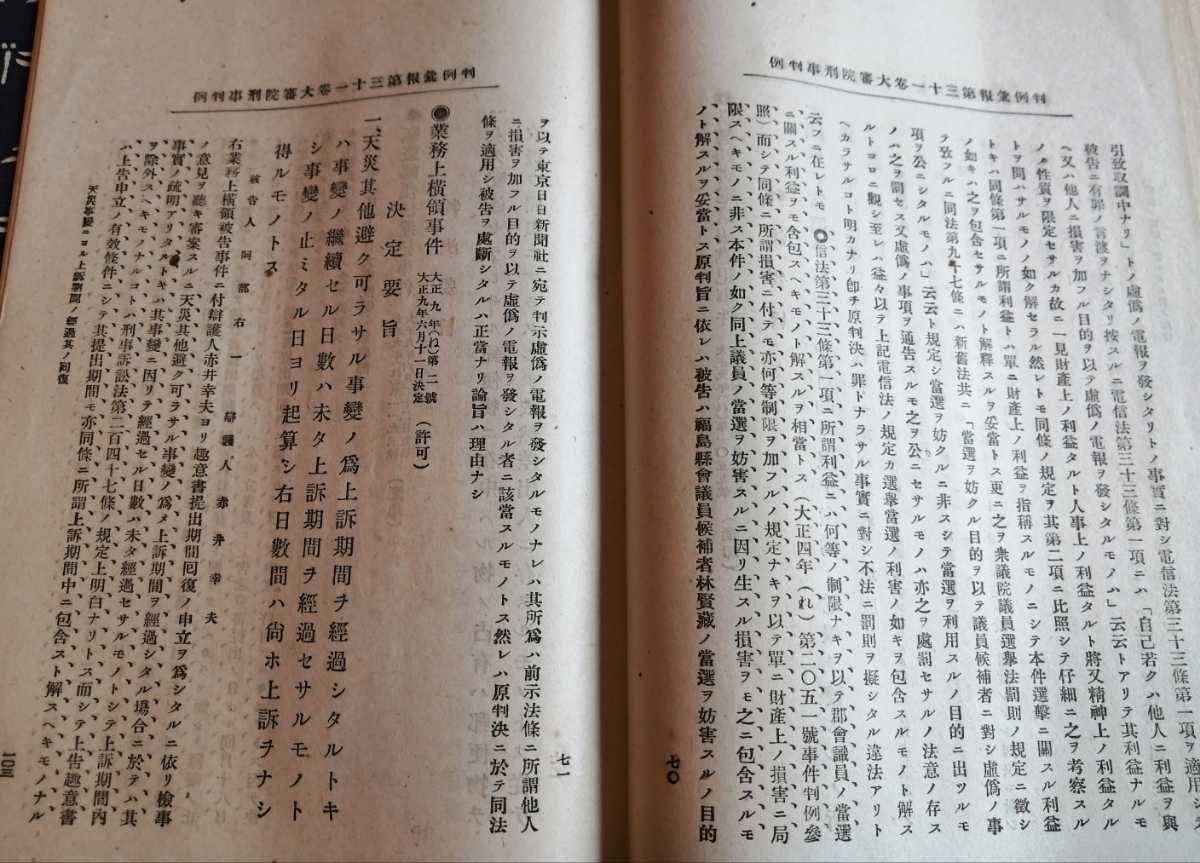 判例彙報第三十一卷大審院刑事判例
引致取調中ナリ」トノ虛僞ノ電報ヲ發シタリトノ事實ニ對シ電信法第三十三條第一項ヲ適用シ
被告ニ有罪ノ言渡ヲナシタリ按スルニ電信法第三十三條第一項ニハ「自己若クハ他人ニ利益ヲ與
ヘ又ハ他人ニ損害ヲ加フル目的ヲ以テ虛僞ノ電報ヲ發シタルモノハ」云云トアリテ其利益ナルモ
ノノ性質ヲ限定セサルカ故ニ一見財產上ノ利益タルト人事上ノ利益タルト將又精神上ノ利益タル
トヲ問ハサルモノノ如ク解セラル然レトモ同條ノ規定ヲ其第二項ニ比照シテ仔細ニ之ヲ考察スル
トキハ同條第一項ニ所謂利益トハ單ニ財產上ノ利益ヲ指稱スルモノニシテ本件選擧ニ關スル利益
ノ如キハ之ヲ包含セサルモノト解釋スルヲ妥當トス更ニ之ヲ衆議院議員選擧法罰則ノ規定ニ徵シ
テ攷フルニ同法第九十七條ニハ新舊法共ニ「當選ヲ妨クル目的ヲ以テ議員候補者ニ對シ虛僞ノ事
項ヲ公ニシタルモノハ」云云ト規定シ當選ヲ妨クルニ非スシテ當選ヲ利用スルノ目的ニ出ツルモ
ノハ之ヲ罰セス又虛僞ノ事項ヲ通告スルモ之ヲ公ニセサルモノハ亦之ヲ處罰セサルノ法意ノ存ス
ルトコロニ觀シ至レハ益々以テ上記電信法ノ規定カ選擧當選ノ利害ノ如キヲ包含スルモノト解ス
ヘカラサルコト明カナリ卽チ原判決ハ罪トナラサル事實ニ對シ不法ニ罰則ヲ擬シタル違法アリト
云フニ在レトモ◎信法第三十三條第一項ニ所謂利益ニハ何等ノ制限ナキヲ以テ郡會議員ノ當選
ニ關スル利益ヲモ含包スヘキモノト解スルヲ相當トス(大正四年(れ)第二〇五一號事件判例參
照)而シテ同條ニ所謂損害ニ付テモ亦何等制限ヲ加フルノ規定ナキヲ以テ單ニ財產上ノ損害ニ局
限スヘキモノニ非ス本件ノ如ク同上議員ノ當選ヲ妨害スルニ因リ生スル損害ヲモ之ニ包含スルモ
ノト解スルヲ妥當トス原判旨ニ依レハ被告ハ福島縣會議員候補者林賢藏ノ當選ヲ妨害スルノ目的
七〇
判例彙報第三十一卷大審院刑事判例
ヲ以テ東京日日新聞社ニ宛テ判示虛僞ノ電報ヲ發シタルモノナレハ其所爲ハ前示法條ニ所謂他人
ニ損害ヲ加フル目的ヲ以テ虛僞ノ電報ヲ發シタル者ニ該當スルモノトス然レハ原判決ニ於テ同法
條ヲ適用シ被告ヲ處斷シタルハ正當ナリ論旨ハ理由ナシ
七一
◉業務上橫領事件 大正九年(ね)第二號 大正九年六月十一日決定 (許可)
決定要旨
一、天災其他避ク可ラサル事變ノ爲上訴期間ヲ經過シタルトキ
ハ事變ノ繼續セル日數ハ未タ上訴期間ヲ經過セサルモノト
シ事變ノ止ミタル日ヨリ起算シ右日數間ハ尙ホ上訴ヲナシ
得ルモノトス
被告人 阿部右一 辯護人 赤井幸夫
右業務上橫領被告事件ニ付辯護人赤井幸夫ヨリ趣意書提出期間囘復ノ申立ヲ爲シタルニ依リ檢事
ノ意見ヲ聽キ審案スルニ天災其他避ク可ラサル事變ノ爲メ上訴期間ヲ經過シタル場合ニ於テハ其
事實ノ疏明アリタルトキハ其事變ニ因リテ經過セル日數ハ未タ經過セサルモノトシテ上訴期間內
ヲ除外スヘキモノナルコトハ刑事訴訟法第二百四十七條ノ規定上明白ナリトス而シテ上告趣意書
ハ上告申立ノ有效條件ニシテ其提出期間モ亦同條ニ所謂上訴期間中ニ包含スト解スヘキモノナル
天災事變ニヨル上訴期間ノ經過其ノ囘復
二〇三